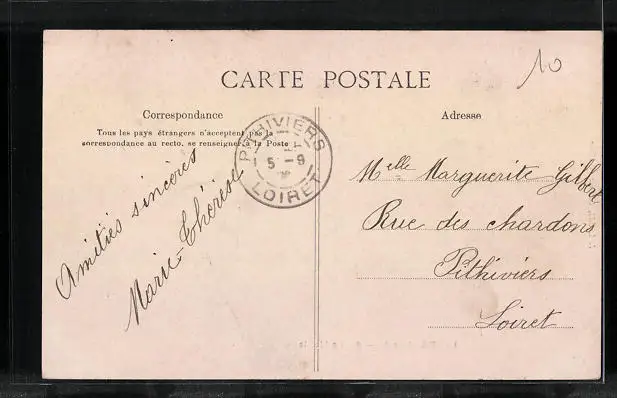 10
CARTE POSTALE
Correspondance
Tous les pays étrangers n'acceptent pas la
correspondance au recto, se renseigner à la Poste
Amitiés sincères
Marie Thérèse
PITHIVIERS
5 - 9
LOIRET
Adresse
Melle Marguerite Gilbert
Rue des chardons
Pithiviers
Loiret